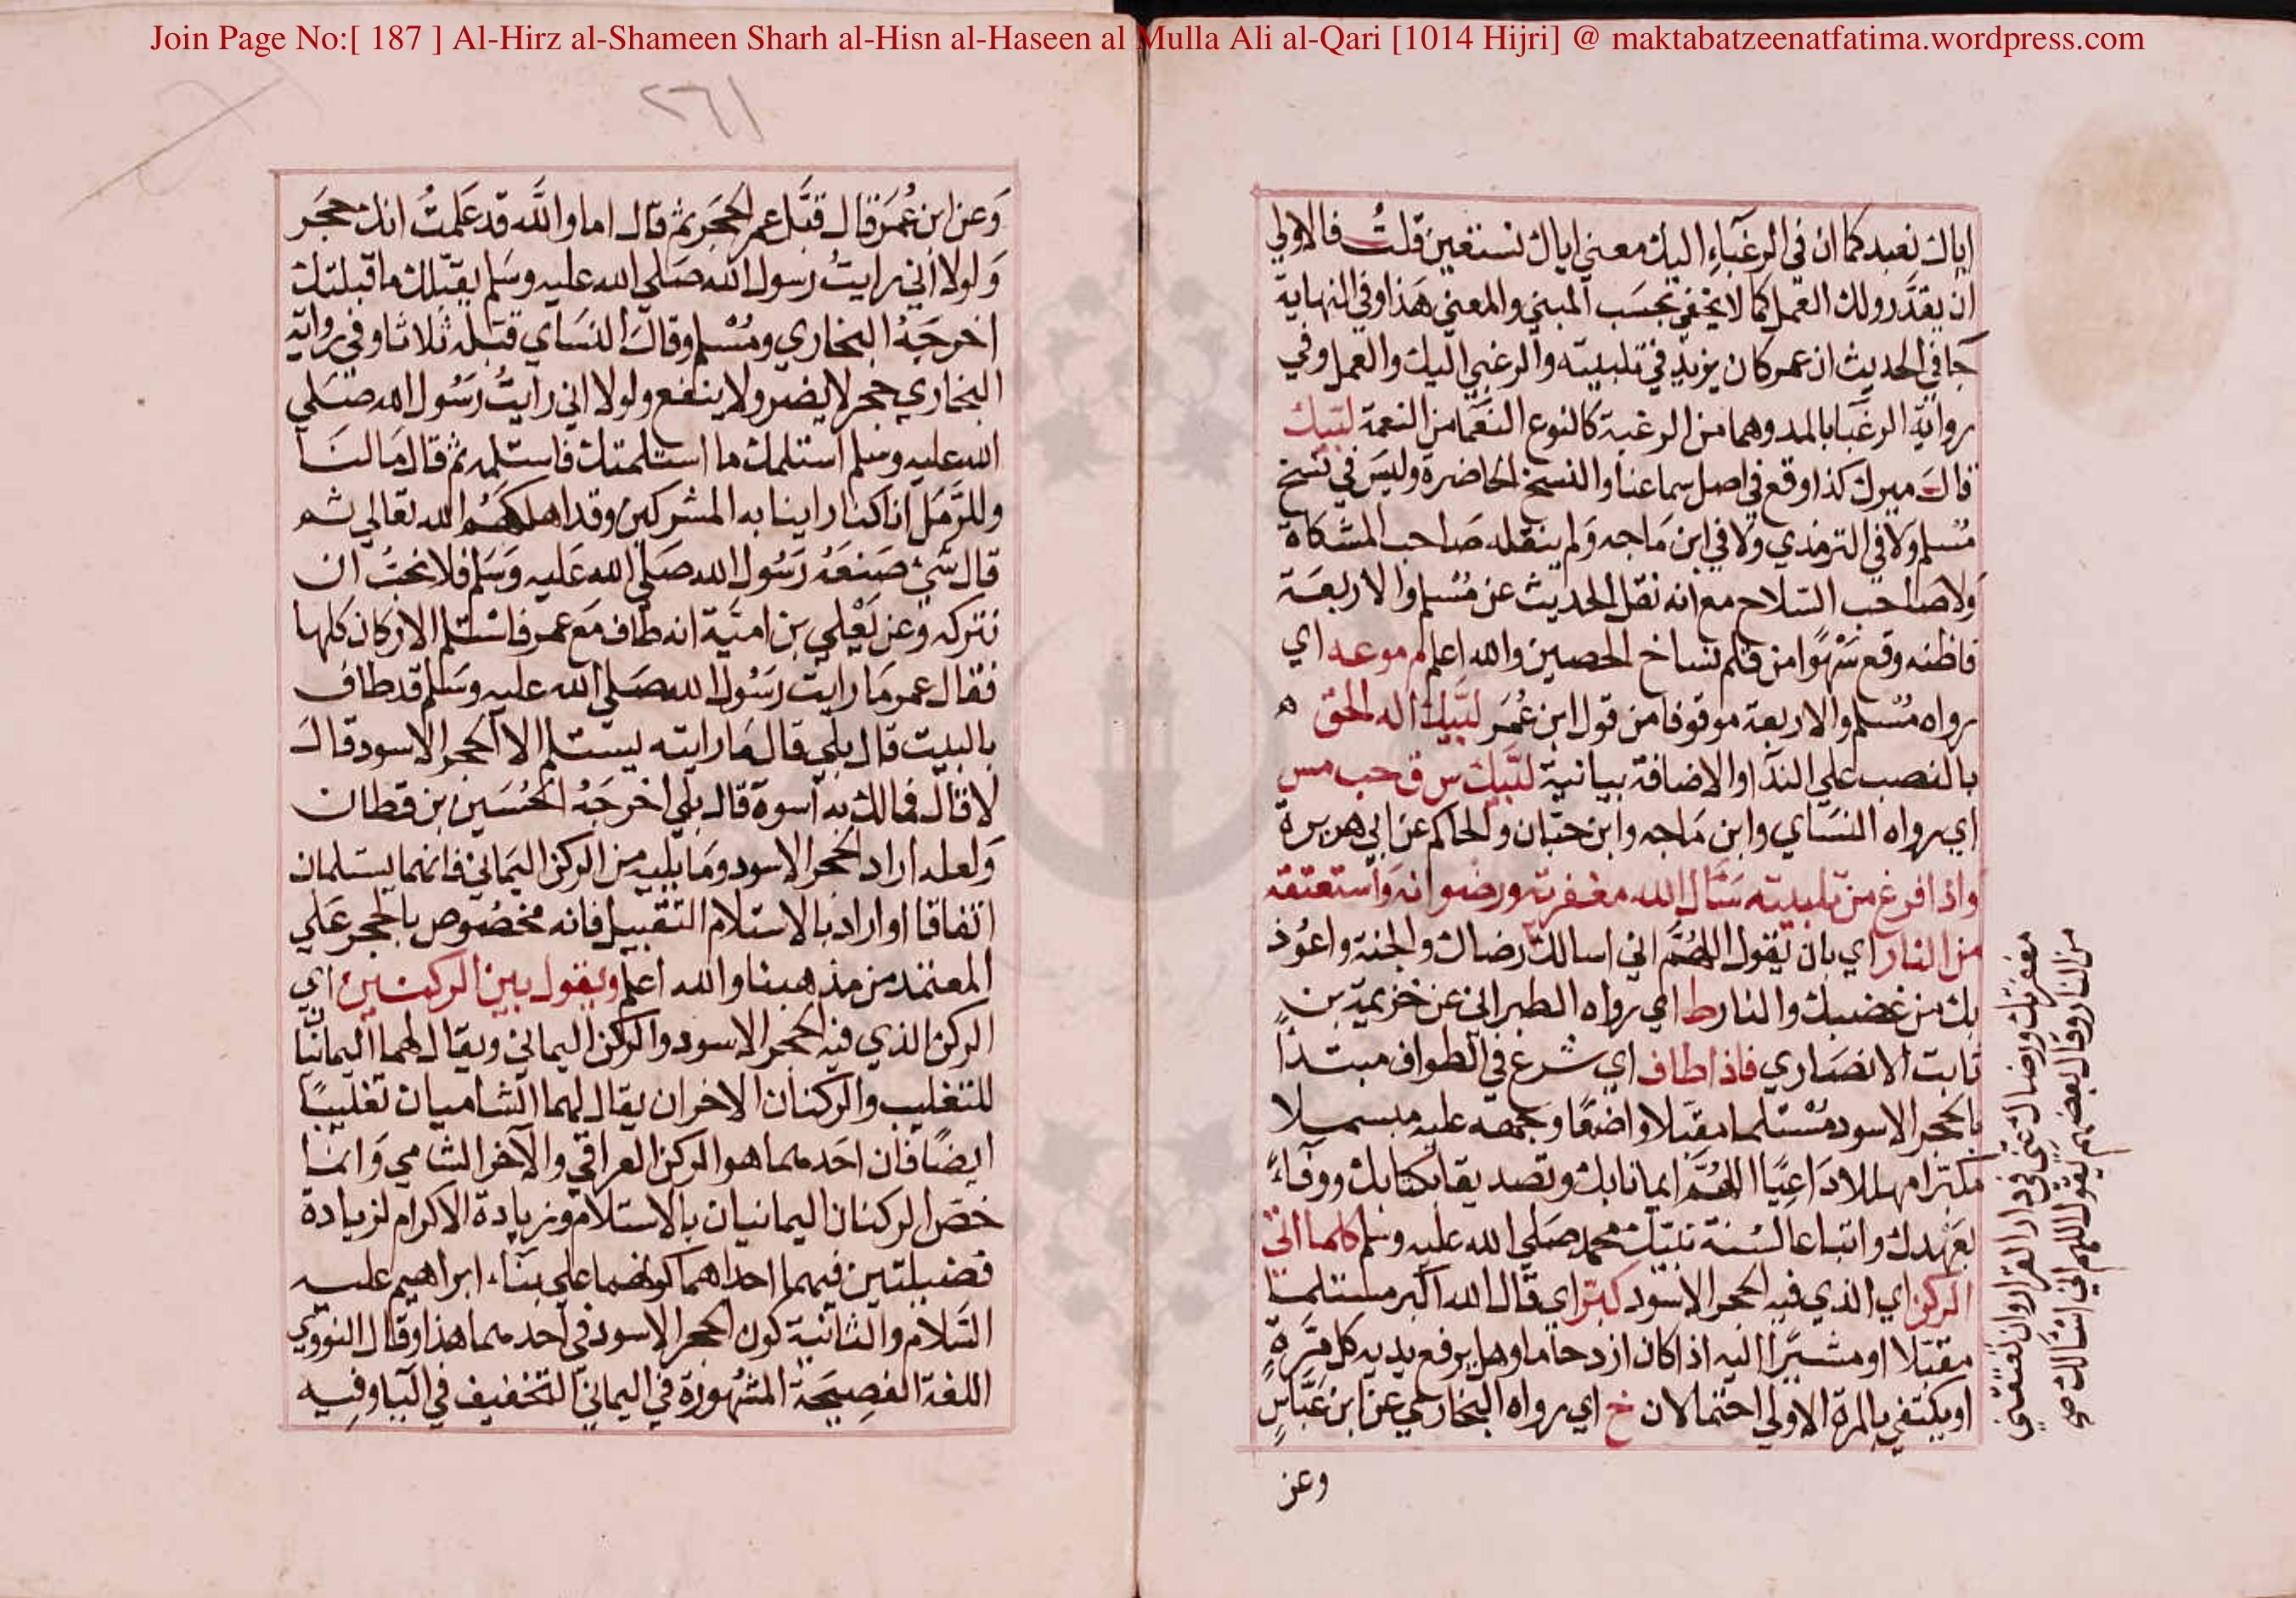 Join Page No:[ 187 ] Al-Hirz al-Shameen Sharh al-Hisn al-Haseen al Mulla Ali al-Qari [1014 Hijri] @ maktabatzeenatfatima.wordpress.com
اياك نعبد كما ان في الرغبَاءِ اليك معني اياك نستعين قلتُ فالاولي
ان يقدَّر ولك العمل كما لا يخفي بحسَب المبني والمعني هَذا وفي النهاية
جَا في الحديث ان عمر كان يزيد في تلبيته والرغبي اليك والعمل وفي
رواية الرغبَا بالمد وهما من الرغبة كالنوع النعَما من النعمة لبّيك
قالَ ميرك كذا وقع في اصل سماعنا والنسخ الحاضرة وليسَ في نسخ
مُسلم وَلا في الترمذي ولا في ابن مَاجه وَلم ينقله صَاحب المشكاة
وَلا صَاحب السّلاح مع انه نقل الحديث عن مُسْلم والاربعَة
فاظنه وقع سَهْوًا من قلم نساخ الحصين والله اعلم م موعه اي
رواه مُسْلم والاربعة موقوفا من قول ابن عُمَر لبّيك اله الحق ه
بالنصب علي الندَا والاضافة بيانية لبّيك س ق حب مس
اي رواه النسَاي وابن مَاجه وابن حبّان والحاكم عن ابي هريرة
واذا فرغ من تلبيته سَأل الله مغفرته ورضوانه وَاستعتقه
من النار اي بان يقول اللهُمَّ اني اسالك رضاك والجنة واعوُذ
بك من غضبك والنار ط اي رواه الطبراني عن خزيمة بنِ
ثابت الانصَاري فاذا طاف اي شرع في الطواف مبتدأ
بالحجر الاسود مُسْتلما مقبّلا واضعًا وجهه عليه مبسملا
مكبّرا مهللا دَاعِيًا اللهُمَّ ايمانا بك وتصديقا بكتابك ووفاءً
بعَهْدك واتباعا لسُنة نبيّك محمد صَلي الله عليه وسلم كلما اتي
الركن اي الذي فيه الحجر الاسود كبّر اي قال الله اكبر مستلما
مقبّلا او مشيرًا اليه اذا كان ازدحاما وهل يرفع يديه كل مَرَّةٍ
او يكتفي بالمرة الاولي احتمالان خ اي رواه البخاري عن ابن عَبَّاسٍ
وعن
مغفرتك ورضاك عَنّي في دار القرار وان تعتقني
من النار وقال بعضهم يقول اللهم اني اسْالك صح
٢٦١
وَعن ابن عُمَرَ قال قبَّل عمر الحجَر ثم قال اما والله قد عَلمتُ انك حجَر
وَلولا اني رايتُ رسول الله صَلي الله عليه وسَلم يقبّلك ما قبلتك
اخرجَهُ البخاري ومُسْلم وقالَ النسَاي قبّله ثلاثا وفي رواية
البخاري حجر لا يضر ولا ينفع ولولا اني رايتُ رَسُول الله صَلي
الله عليه وسلم استلمك ما استلمتك فاستلمه ثم قال مَا لنَا
وللرَّمَل انا كنا راينا به المشركين وقد اهلكهُم الله تعَالي ثم
قال شي صَنعَهُ رَسُول الله صَلي الله عَليه وَسَلم فلا نحبُّ ان
نتركه وَعن يَعْلي بن امنيَة انه طاف مَع عمر فاسْتلم الاركان كلها
فقال عمر مَا رايت رَسُول الله صَلي الله عليه وسَلم قد طاف
بالبيت قال بلي قال مَا رايته يستلم الا الحجر الاسود قالَ
لا قال فمالك به اسوة قال بلي اخرجَهُ الحُسَين بن قطان
وَلعله اراد الحجر الاسود وَما يليه من الركن اليَماني فانهما يستلمان
اتفاقا او اراد بالاستلام التقبيل فانه مخصُوص بالحجر عَلي
المعتمد من مذهبنا والله اعلم ويقول بين الركنين اي
الركن الذي فيه الحجر الاسود والركن اليماني ويقال لهما اليمانيّا
للتغليب والركنان الاخران يقال لهما الشاميان تغليبًا
ايضًا فان احَدهما هو الركن العراقي والآخر الشامي وَانما
خصّ الركنان اليمانيان بالاستلام وزيادة الاكرام لزيادة
فضيلتين فيهما احداهما كونهما علي بنَاء ابراهيم عليه
السّلام والثانية كون الحجر الاسود في احدهما هذا وقال النووي
اللغة الفصِيحَة المشهُورَة في اليماني التخفيف في اليا وفِيه